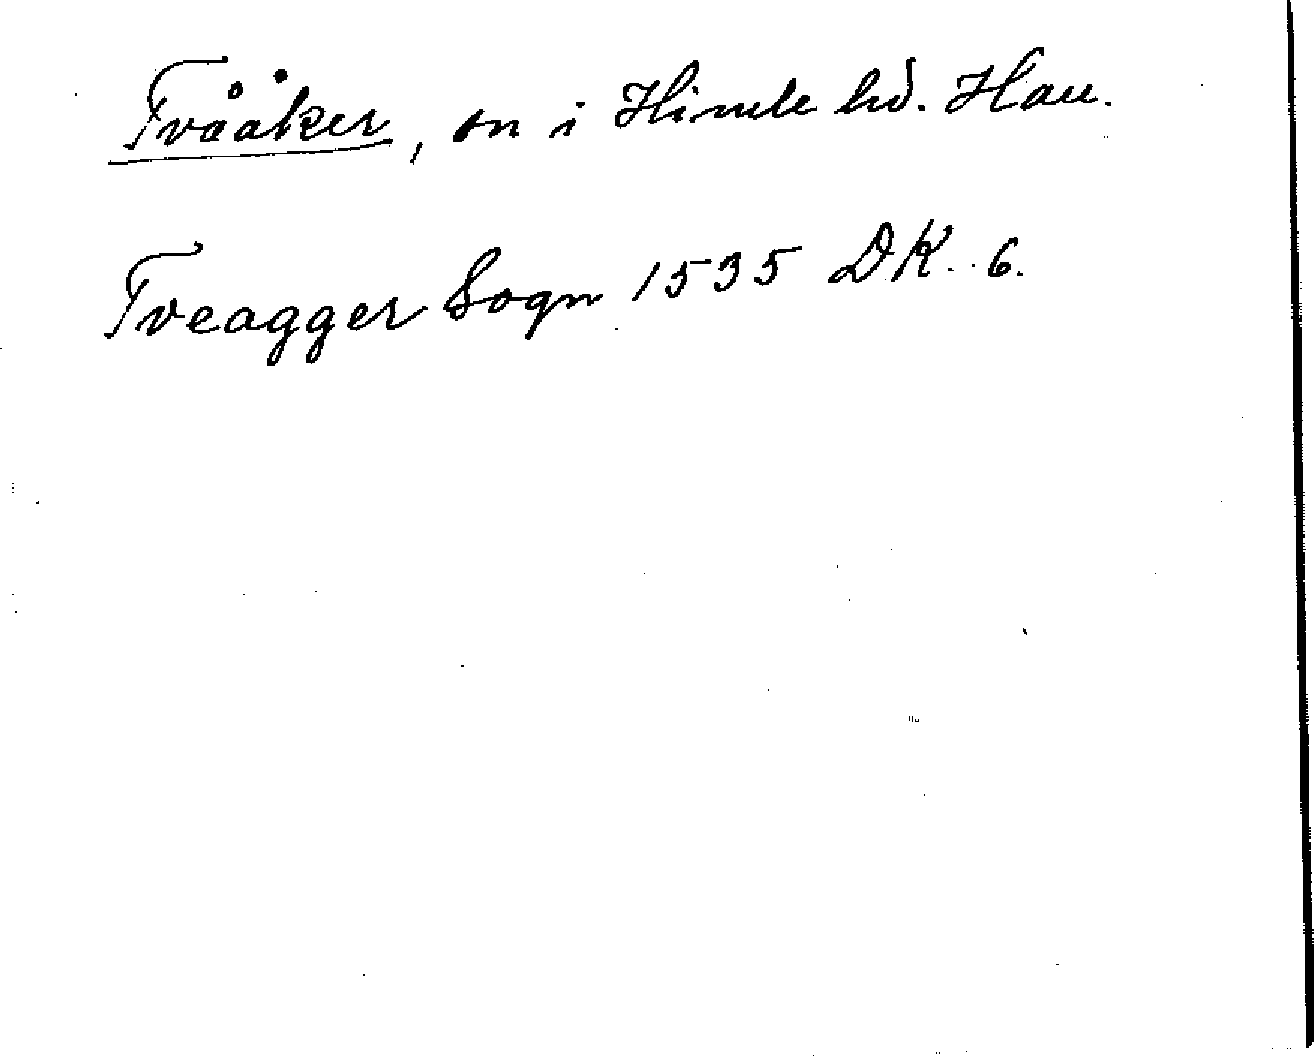 Tvååker, sn i Himle hd. Hall.
Tveagger Sogn 1535 DK. 6.